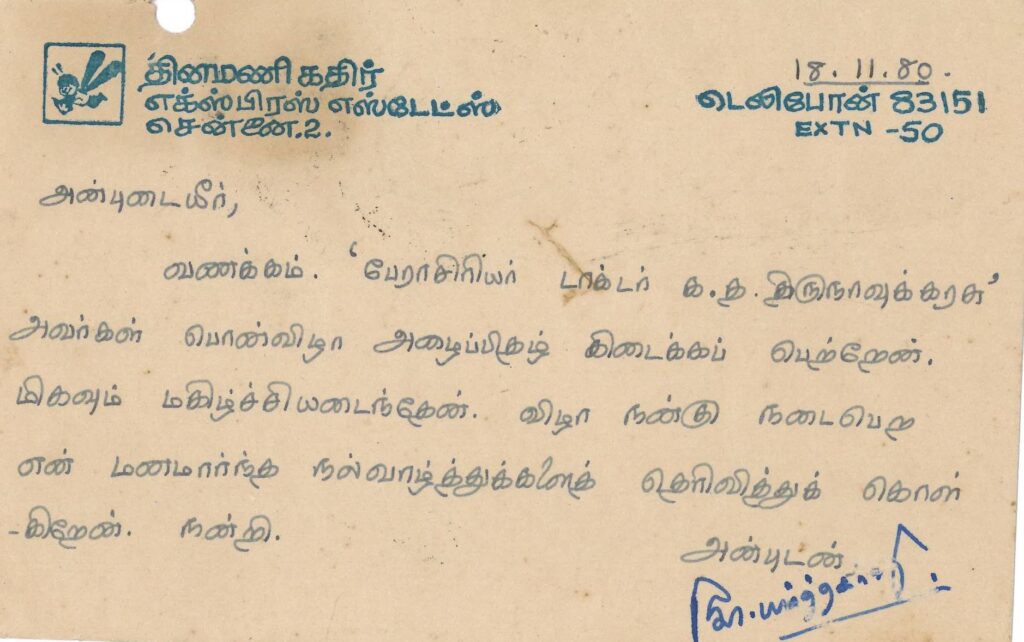 தினமணி கதிர்
எக்ஸ்பிரஸ் எஸ்டேட்ஸ்
சென்னை.2.
18.11.80.
டெலிபோன் 83151
EXTN -50
அன்புடையீர்,
வணக்கம். 'பேராசிரியர் டாக்டர் க.த.திருநாவுக்கரசு'
அவர்கள் பொன்விழா அழைப்பிதழ் கிடைக்கப் பெற்றேன்.
மிகவும் மகிழ்ச்சியடைந்தேன். விழா நன்கு நடைபெற
என் மனமார்ந்த நல்வாழ்த்துக்களைத் தெரிவித்துக் கொள்
-கிறேன். நன்றி.
அன்புடன்